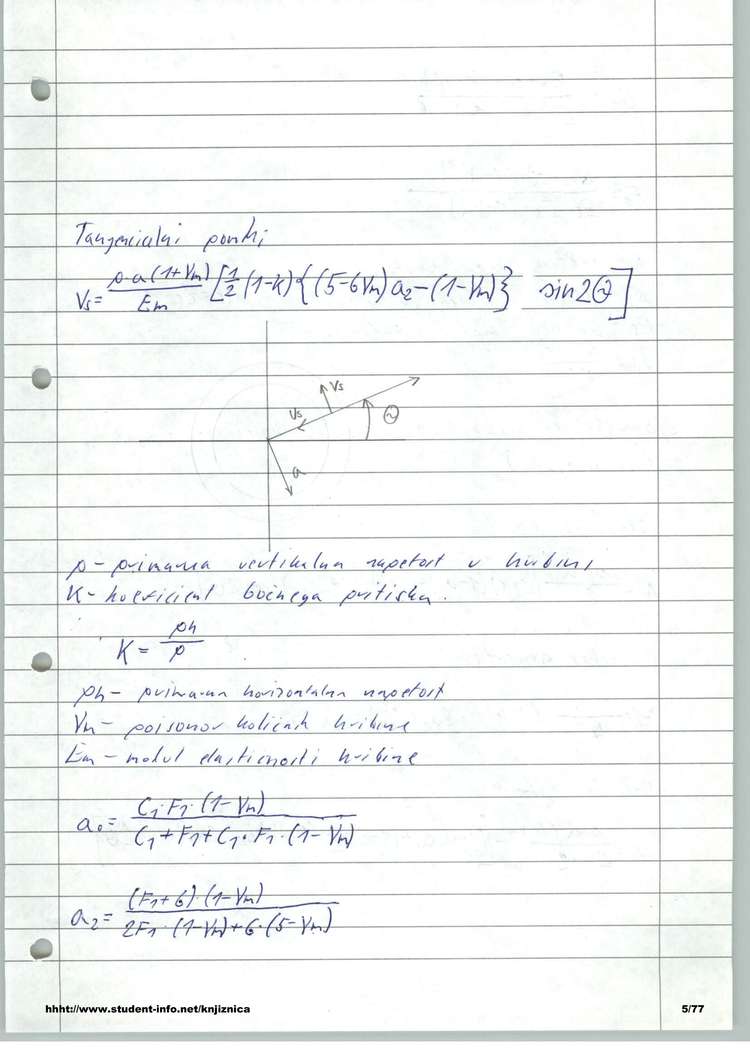 Tangencialni pomki
Vs = p·a(1+Vm)/Em [1/2 (1-K){(5-6Vm)a2-(1-Vm)} sin2Θ]
Vs
Vs
Θ
a
p - primarna vertikalna napetost v hribini
K - koeficient bočnega pritiska.
K = ph/p
ph - primarna horizontalna napetost
Vm - poisonov količnik hribine
Em - modul elastičnosti hribine
a0 = C1·F1·(1-Vm)/C1+F1+C1·F1·(1-Vm)
a2 = (F1+6)·(1-Vm)/2F1·(1-Vm)+6·(5-Vm)
hhht://www.student-info.net/knjiznica 5/77